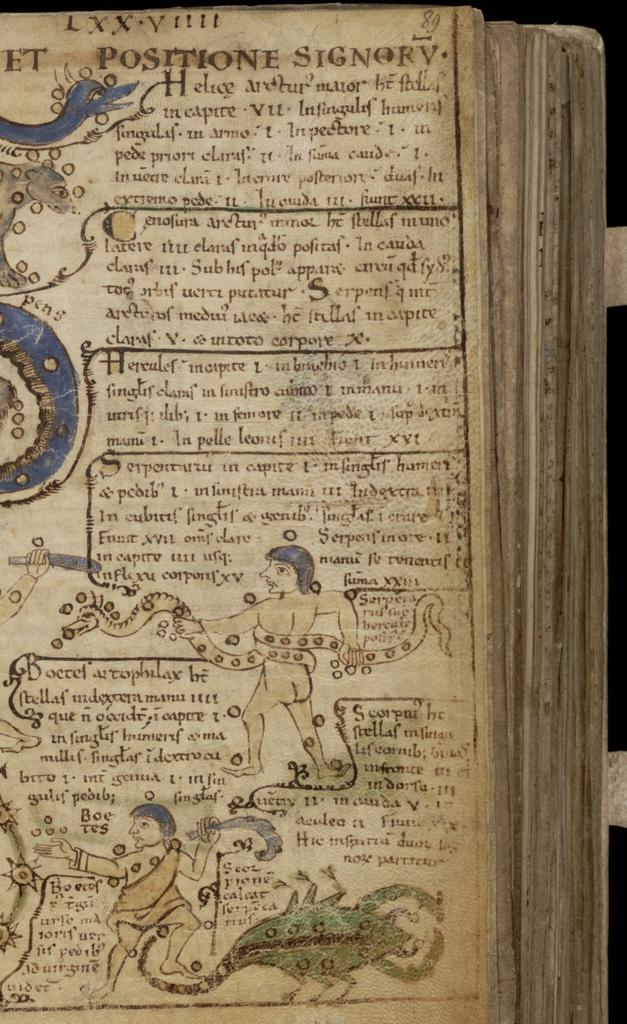 LXX·VIIII
89
ET POSITIONE SIGNORV̄·
Helice arctur᾽ maior ht̄ stellas
in capite · VII · In singulis humeris
singulas · in armo · I · In pectore · I · in
pede priori claras · II · In sūma caude · I ·
in uētre clarā I · In crure posteriori duas · In
extremo pede · II · In cauda III · fiunt XXII ·
Cenosura arctur᾽ minor ht̄ stellas in uno
latere IIII claras in q̄dro positas · In cauda
claras III · Sub his pol᾽ apparet circū qd̄
tot᾽ orbis uerti putatur · Serpens q̄ int̄
arcturos medius iacet · ht̄ stellas in capite
claras · V · & in toto corpore X ·
pens
Hercules in capite I · in brachio I · in humeris
singlis claras in sinistro cubito I in manu · I · in
in femore II in pede I ·
manū I · In pelle leonis IIII fiunt XVI
Serpentarii in capite I · in singlis humeris
& pedib᾽ I · in sinistra manu III In dextra IIII
In cubitis singlis & genib᾽ singlas · I crure
Fiunt XVII oms̄ clare Serpens in ore II
in capite IIII usq; manū se tenentis
in flexu corporis XV sūma XXIII
Serpēta
rius sup̄
hercule
Boetes artophilax ht̄
stellas in dextera manu IIII
que n̄ occidt̄ ī capite I ·
in singlis humeris & ma
millis singlas ī dextro cu
bito I · int̄ genua I · in sin
gulis pedib; singlas ·
Scorpius ht̄
stellas in singu
lis cornib;
in fronte III
in dorso III
uētre II · in cauda V ·
aculeo II Fiunt XIX
Hic in spatiū duor᾽ sig
nor᾽ partitur
Boe
tes
Boetes
urse ma
ioris
sis pedib᾽
ad uirginē
uidet᾽
Scor
pionē
calcat
serpēta
rius